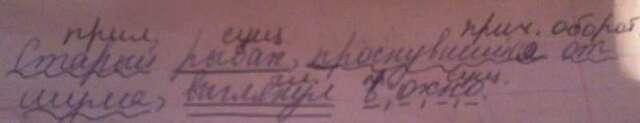 прил. сущ прич. оборот
Старый рыбак, проснувшийся от
гл. пр. сущ.
шума, выглянул в окно.